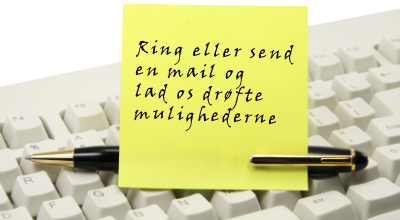 Ring eller send
en mail og
lad os drøfte
mulighederne